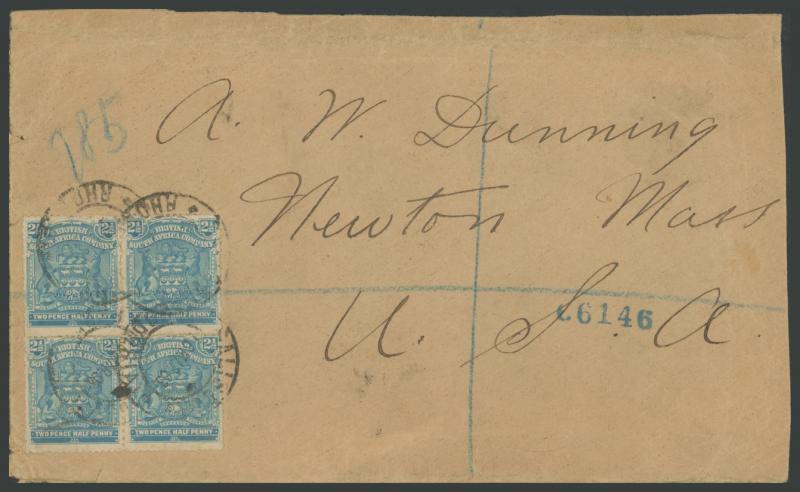 785
A. W. Dunning
Newton Mass
U. S. A.
6146
2½D 2½D
BRITISH
SOUTH AFRICA COMPANY
TWO PENCE HALF PENNY
2½D 2½D
BRITISH
SOUTH AFRICA COMPANY
TWO PENCE HALF PENNY
2½D 2½D
BRITISH
SOUTH AFRICA COMPANY
TWO PENCE HALF PENNY
2½D 2½D
BRITISH
SOUTH AFRICA COMPANY
TWO PENCE HALF PENNY